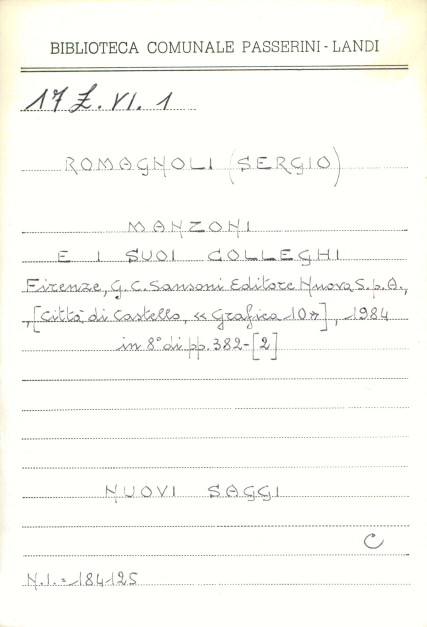 BIBLIOTECA COMUNALE PASSERINI - LANDI
17 Z. VI. 1
ROMAGNOLI (SERGIO)
MANZONI
E I SUOI COLLEGHI
Firenze, G. C. Sansoni Editore Nuova S.p.A.,
,[Città di Castello, «Grafica 10»], 1984
in 8° di pp. 382-[2]
NUOVI SAGGI
C
N.I. = 184125